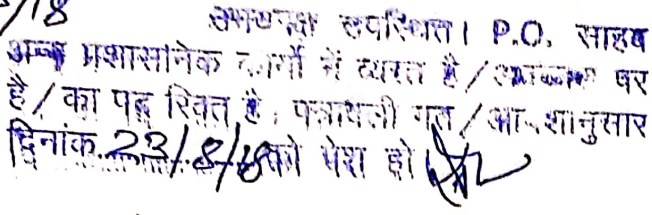 /18
उभयपक्ष उपस्थित। P.O. साहब
अन्य प्रशासनिक कार्यो में व्यस्त है/अवकाश पर
है/का पद रिक्त है, पत्रावली गत/आदेशानुसार
दिनांक 23/8/18 को पेश हो